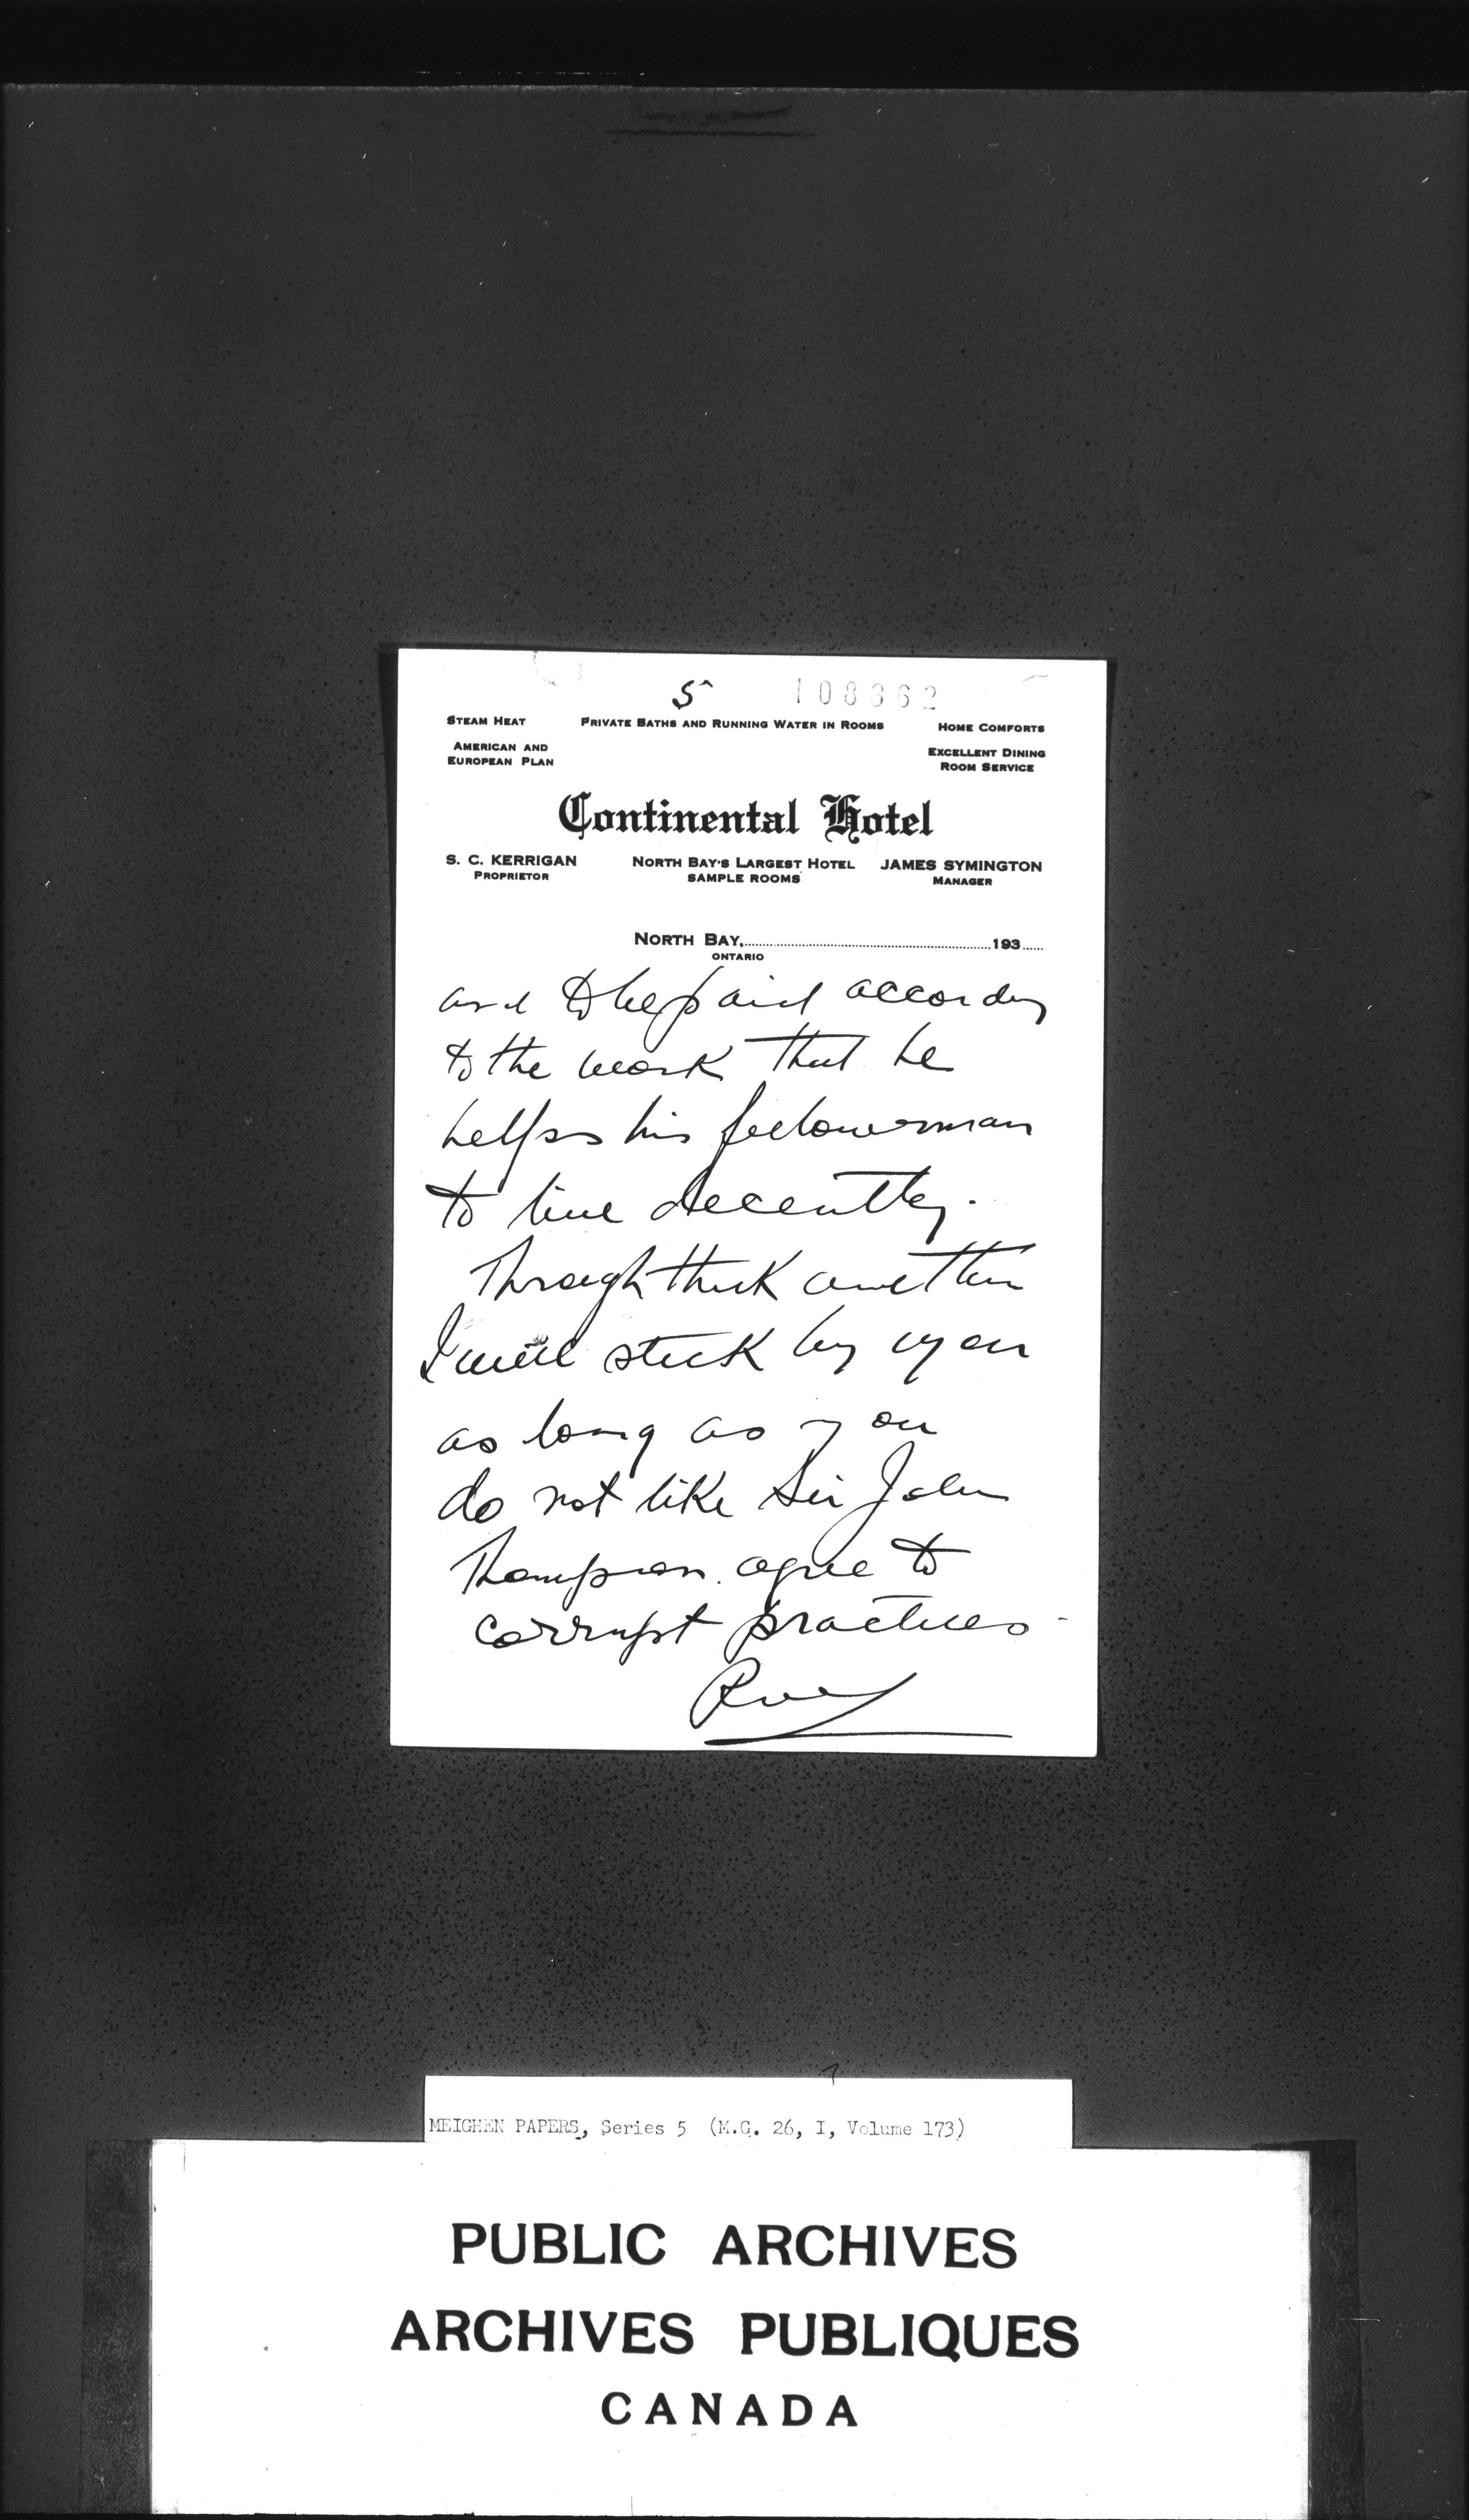 5 108362
STEAM HEAT PRIVATE BATHS AND RUNNING WATER IN ROOMS HOME COMFORTS
AMERICAN AND EUROPEAN PLAN EXCELLENT DINING ROOM SERVICE
Continental Hotel
S. C. KERRIGAN NORTH BAY'S LARGEST HOTEL JAMES SYMINGTON
PROPRIETOR SAMPLE ROOMS MANAGER
NORTH BAY, 193
ONTARIO
and to be paid according
to the work that he
helps his fellowman
to live decently.
Through thick and thin
I will stick by you
as long as you
do not like Sir John
Thompson agree to
corrupt practices
MEIGHEN PAPERS, Series 5 (M.G. 26, I, Volume 173)
PUBLIC ARCHIVES
ARCHIVES PUBLIQUES
CANADA